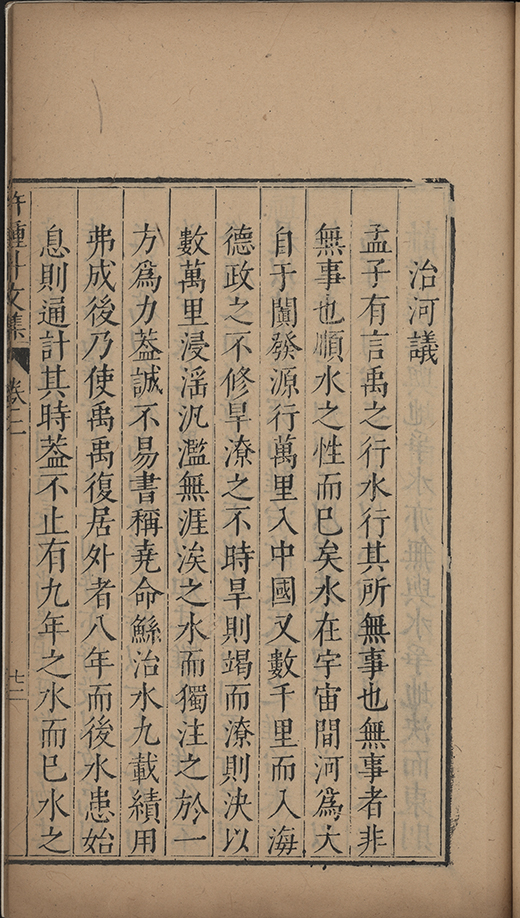 治河議
孟子有言禹之行水行其所無事也無事者非
無事也順水之性而已矣水在宇宙間河為大
自于闐發源行萬里入中國又數千里而入海
德政之不修旱潦之不時旱則竭而潦則決以
數萬里浸滛汎濫無涯涘之水而獨注之於一
方為力葢誠不易書稱堯命鯀治水九載績用
弗成後乃使禹禹復居外者八年而後水患始
息則通計其時葢不止有九年之水而已水之
許鍾斗文集
卷二
七二